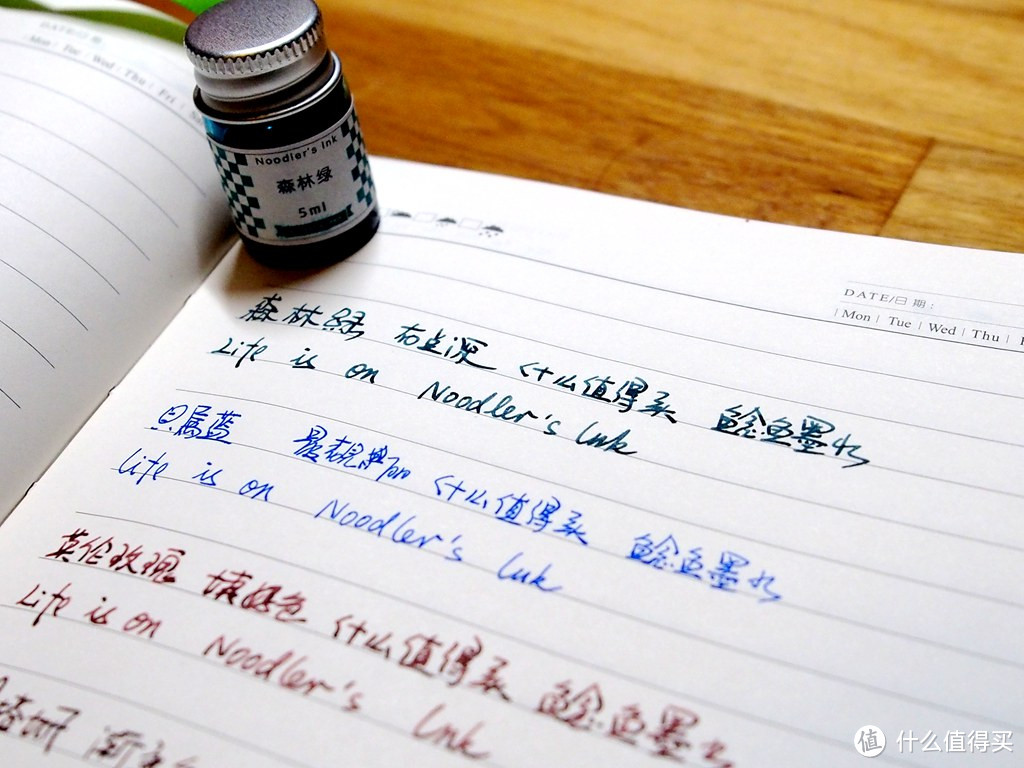 DATE/日期:
Mon Tue Wed Thu Fri
Noodler's Ink
森林绿
5ml
DATE/日期:
Mon Tue Wed Thu
森林绿 有点深 什么值得买 鲶鱼墨水
Life is on Noodler's Ink
贝属蓝 什么值得买 鲶鱼墨水
Life is on Noodler's Ink
英伦玫瑰 什么值得买 鲶鱼墨水
Life is on Noodler's Ink
值 什么值得买